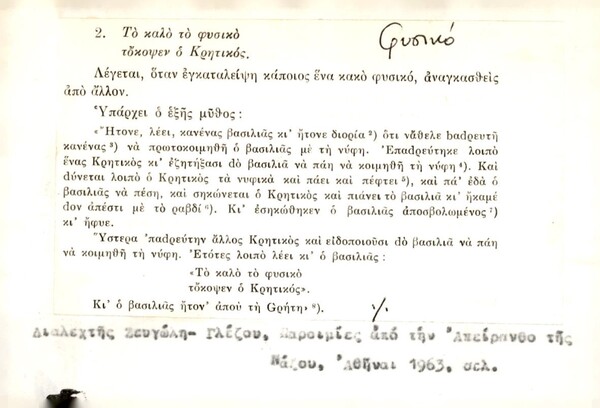 2. Τὸ καλὸ τὸ φυσικὸ
τὄκοψεν ὁ Κρητικός.
φυσικό
Λέγεται, ὅταν ἐγκαταλείψη κάποιος ἕνα κακὸ φυσικό, ἀναγκασθεὶς
ἀπὸ ἄλλον.
Ὑπάρχει ὁ ἑξῆς μῦθος:
«Ἤτονε, λέει, κανένας βασιλιᾶς κι' ἤτονε διορία ²) ὅτι νἄθελε bαdρευτῆ
κανένας ³) νὰ πρωτοκοιμηθῆ ὁ βασιλιᾶς μὲ τὴ νύφη. Ἐπαdρεύτηκε λοιπὸ
ἕνας Κρητικὸς κι' ἐζητήξασι dὸ βασιλιᾶ νὰ πάη νὰ κοιμηθῆ τὴ νύφη ⁴). Καὶ
dύνεται λοιπὸ ὁ Κρητικὸς τὰ νυφικὰ καὶ πάει καὶ πέφτει ⁵), καὶ πά' ἐδὰ ὁ
βασιλιᾶς νὰ πέση, καὶ σηκώνεται ὁ Κρητικὸς καὶ πιάνει τὸ βασιλιᾶ κι' ἤκαμέ
dον ἀπέστι μὲ τὸ ραβδί ⁶). Κι' ἐσηκώθηκεν ὁ βασιλιᾶς ἀποσβολωμένος ⁷)
κι' ἤφυε.
Ὕστερα 'παdρεύτην ἄλλος Κρητικὸς καὶ εἰδοποιοῦσι dὸ βασιλιᾶ νὰ πάη
νὰ κοιμηθῆ τὴ νύφη. Ἐτότες λοιπὸ λέει κι' ὁ βασιλιᾶς:
«Τὸ καλὸ τὸ φυσικὸ
τὄκοψεν ὁ Κρητικός».
Κι' ὁ βασιλιᾶς ἤτον' ἀποὺ τὴ Gρήτη» ⁸). ·/.
Διαλεχτῆς Ζευγώλη- Γλέζου, Παροιμίες ἀπὸ τὴν Ἀπείρανθο τῆς
Νάξου, Ἀθῆναι 1963, σελ.